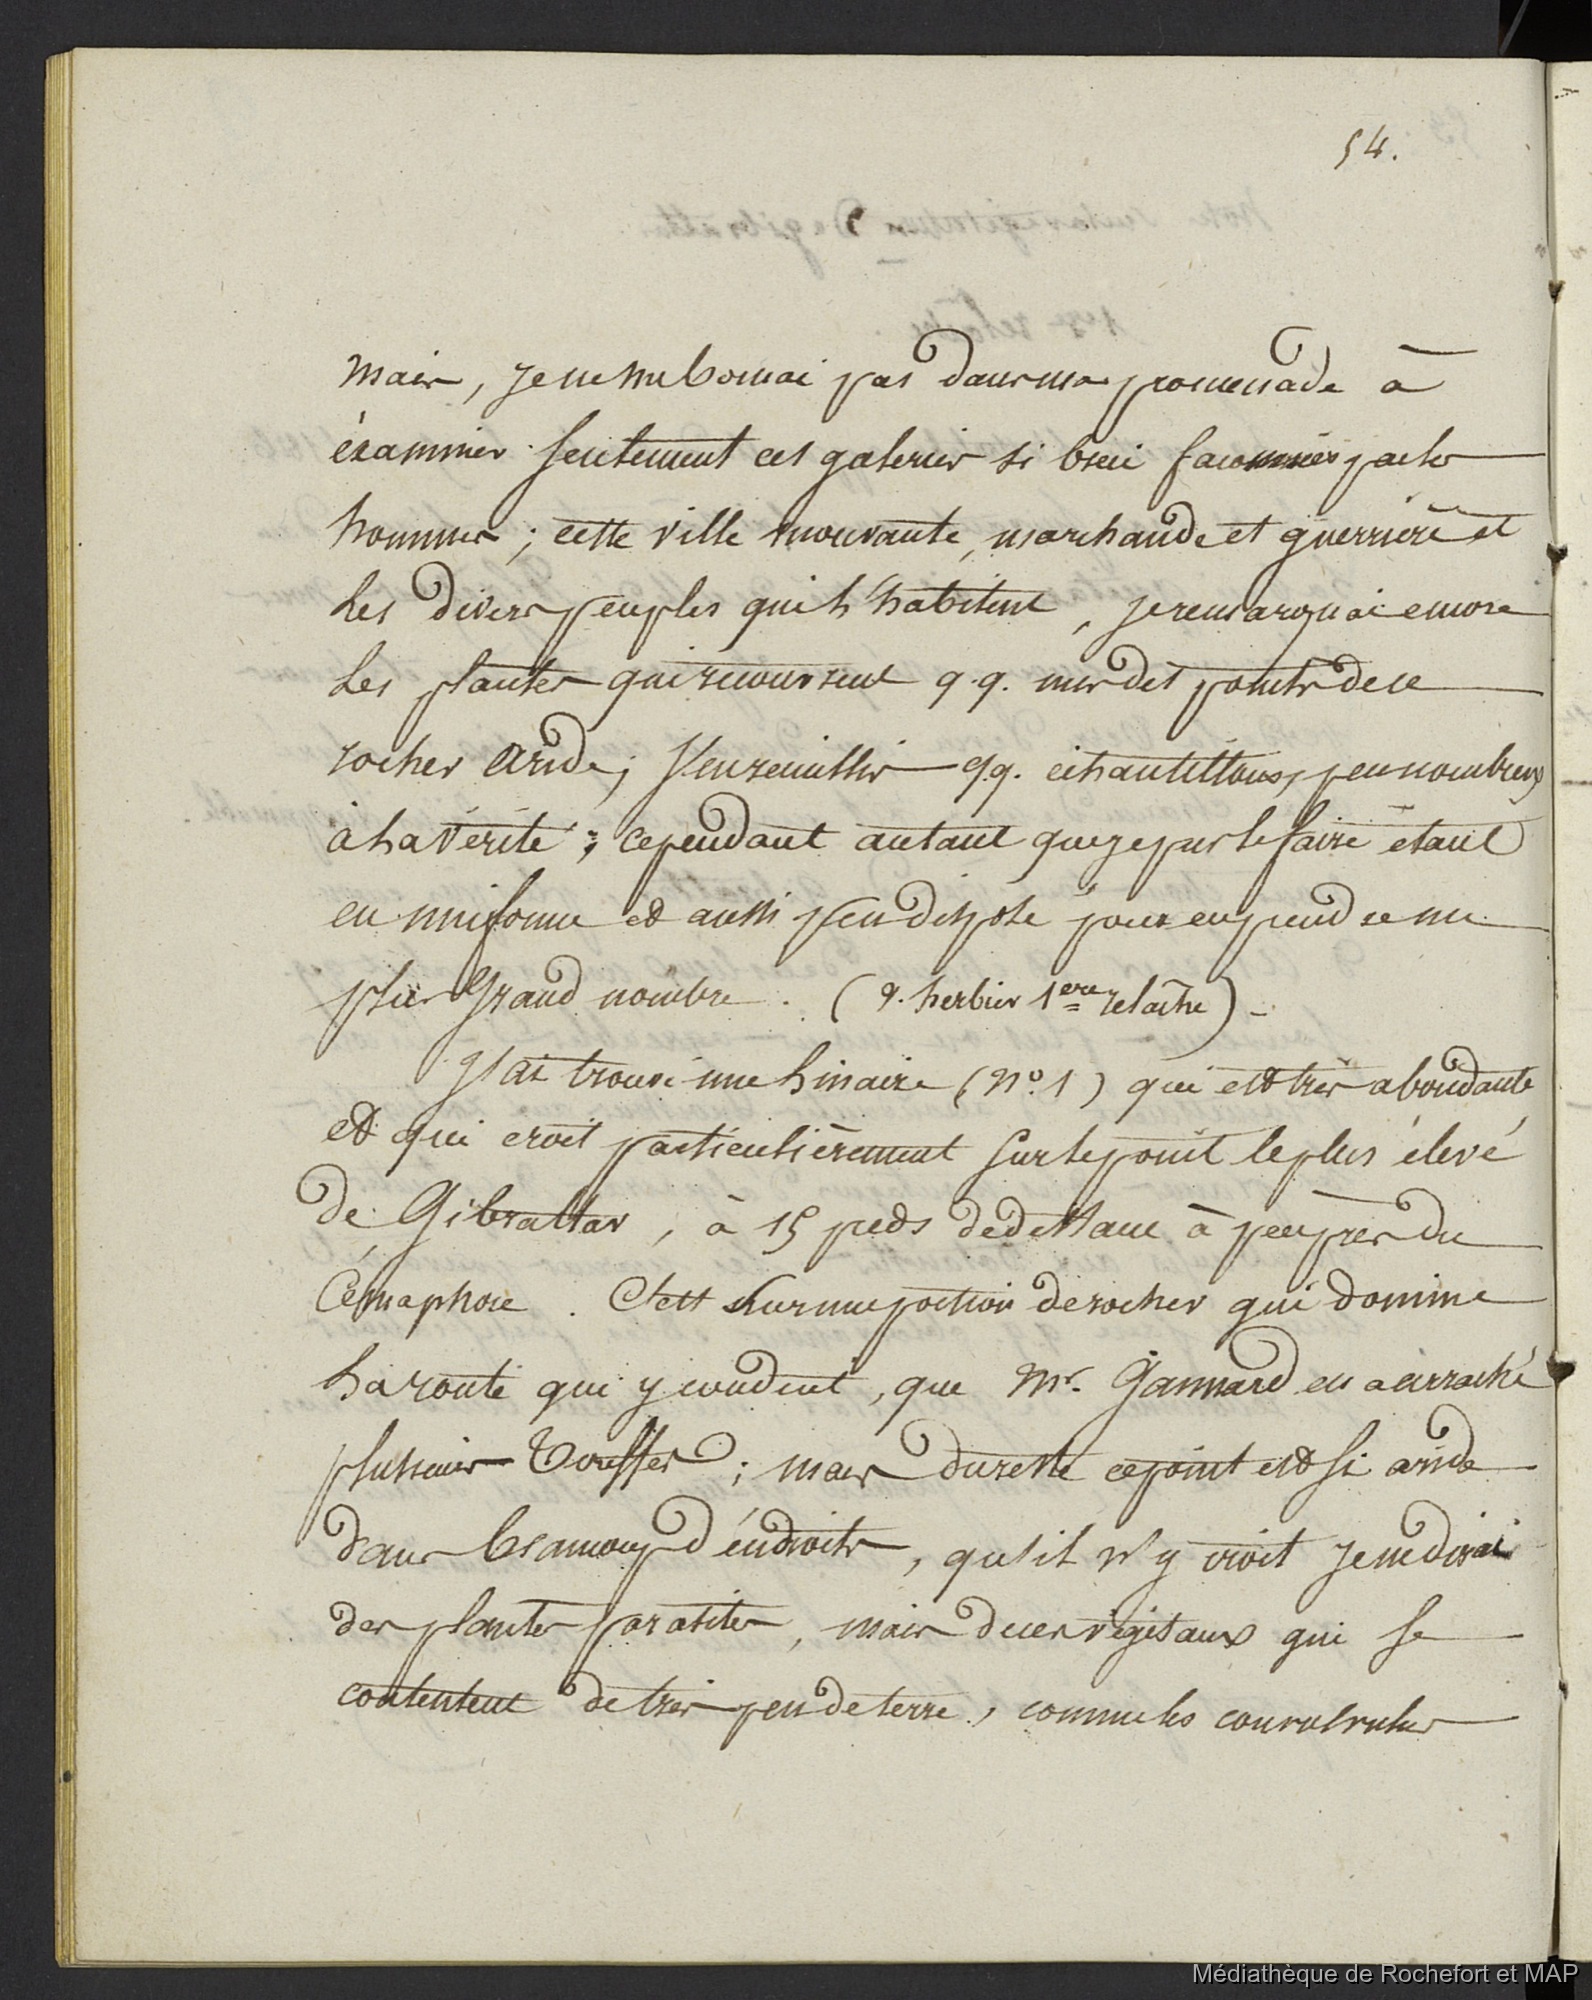 54.
mais, je ne me bornai pas dans ma promenade à
éxaminer seulement ces galeries si bien faconnées par les
hommes ; cette ville mouvante, marchande et guerrière et
les divers peuples qui l'habitent, je remarquai encore
les plantes qui recouvrent q.q. uns des points de ce
rocher aride ; j'en recuillir q.q. échantillons, peu nombreux
à la vérité ; cependant autant que je pus le faire étant
en uniforme et aussi peu disposé pour en prendre un
plus grand nombre. (v. herbier 1ere relâche) _
J'ai trouvé une linaire (N°. 1) qui est très abondante
et qui croit particulièrement sur le point le plus élevé
de Gibraltar, à 15 pieds dedessous à peu près du
Cémaphore. C'est sur une portion de rocher qui domine
la route qui y conduit, que Mr. Gannard en a arraché
plusieurs touffes ; mais du reste ce point est si aride
dans beaucoup d'éndroits, qu'il n'y croit je ne dirai
des plantes parasites, mais de ces végétaux qui se
contentent de très peu de terre, comme les convolvulus
Médiathèque de Rochefort et MAP